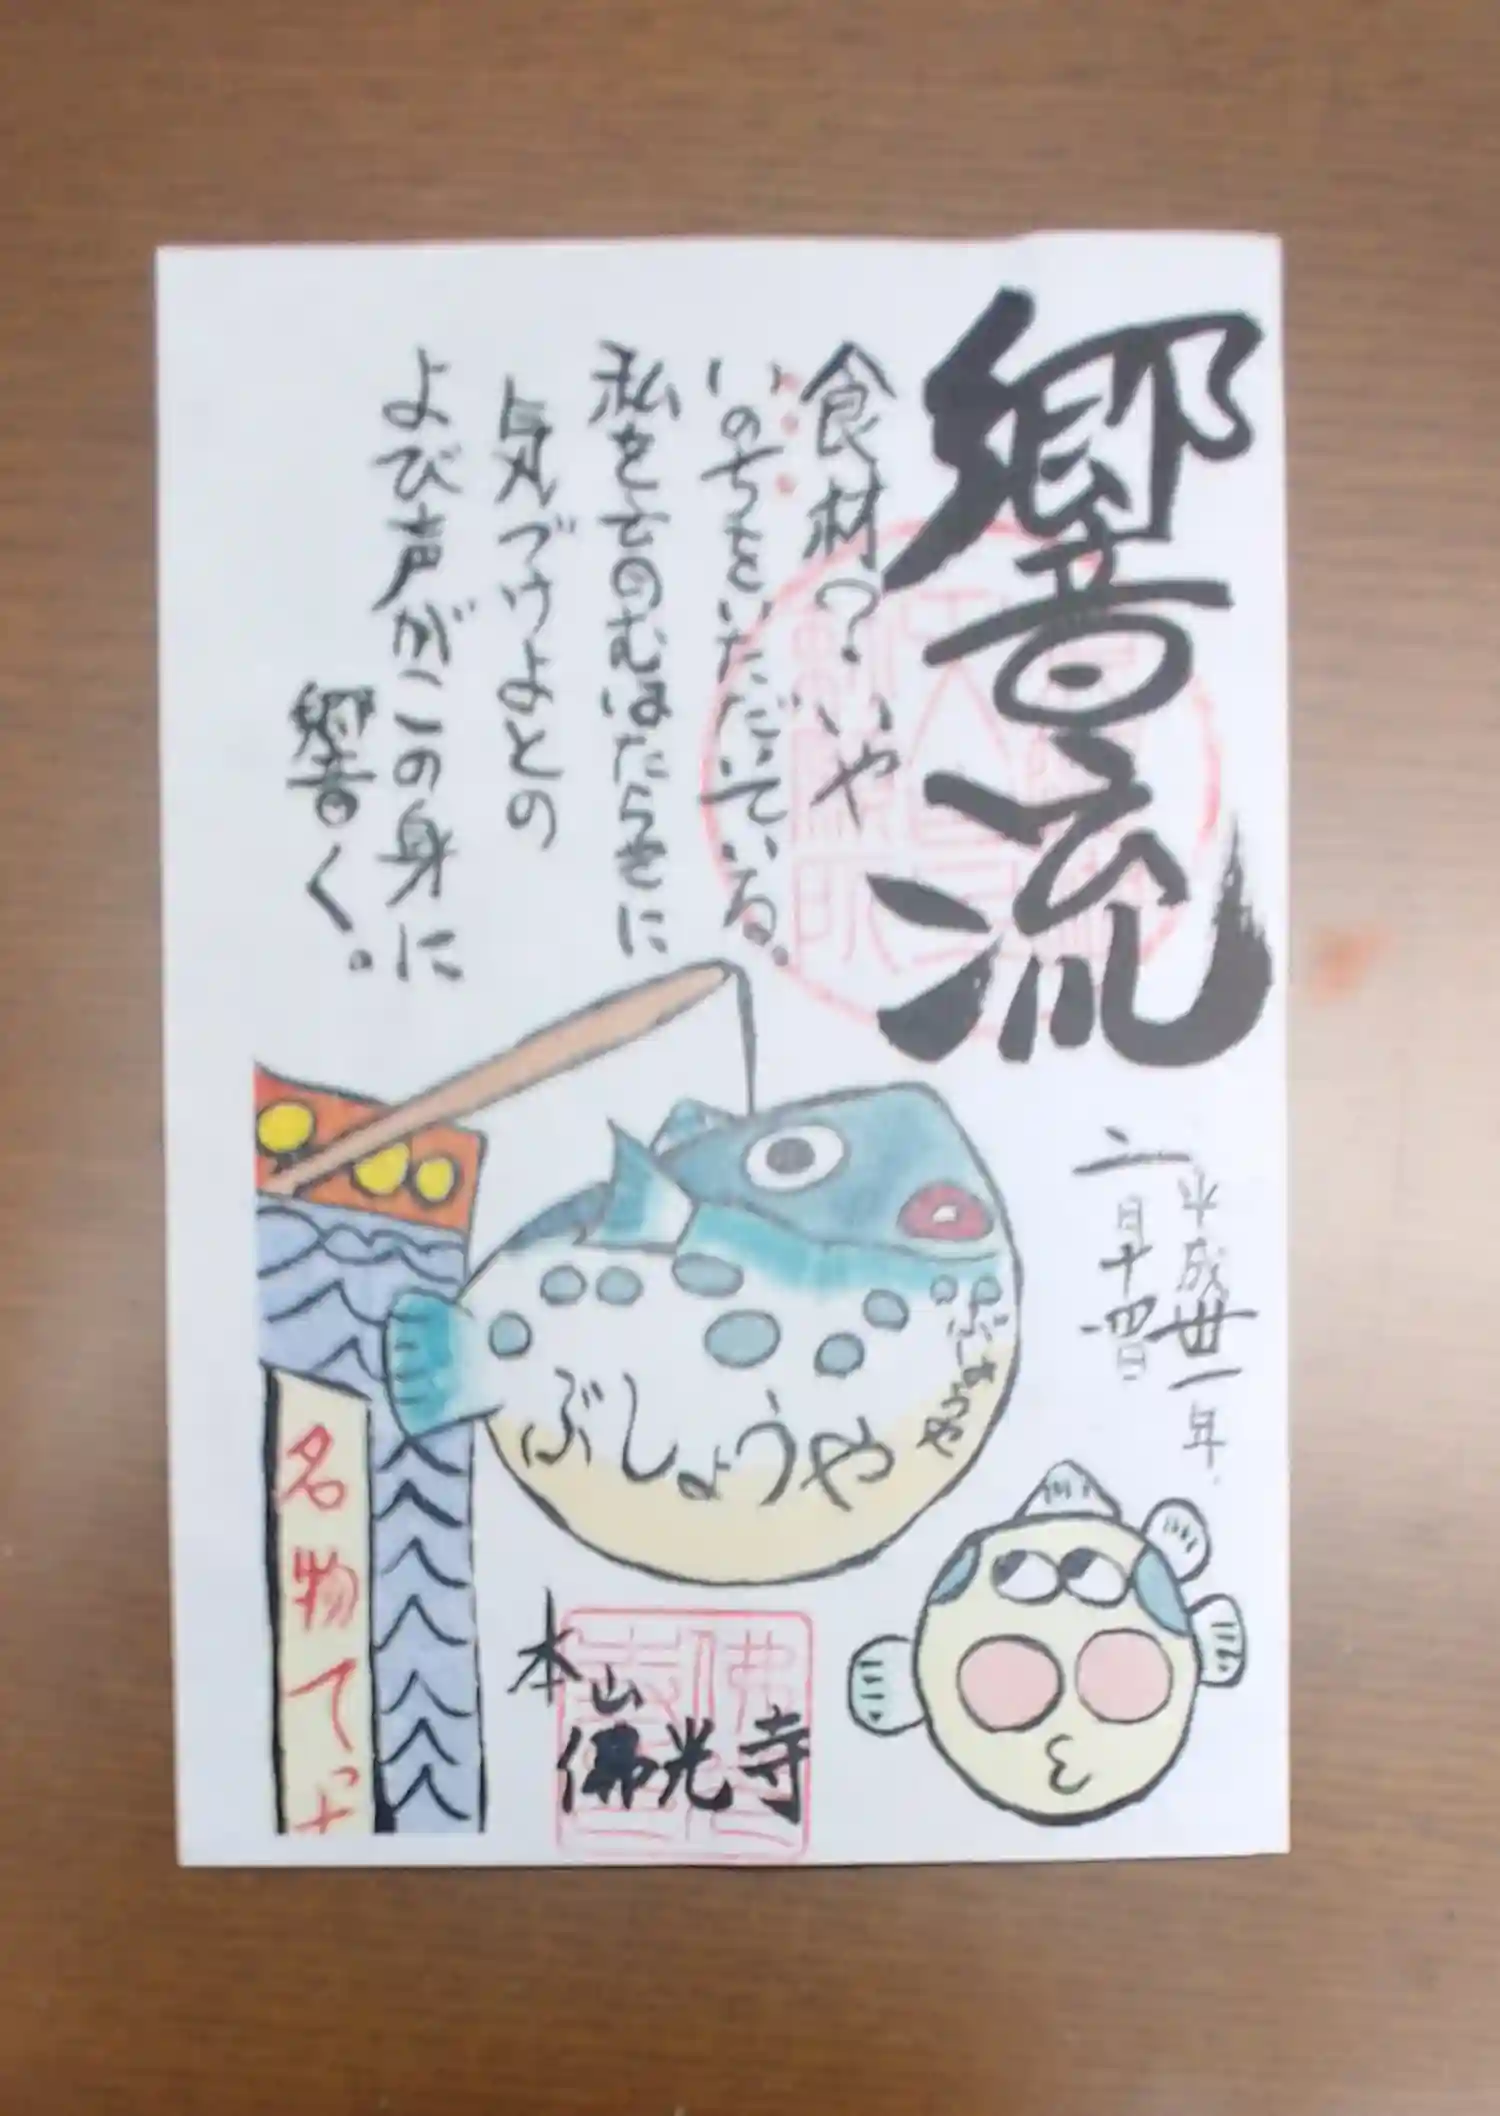 響流
食材?いや
いのちをいただいている。
私をたのむはたらきに
気づけよとの
よび声がこの身に
響く。
平成卅一年
二月十四日
ぶしょうや
名物てっ
本山
佛光寺